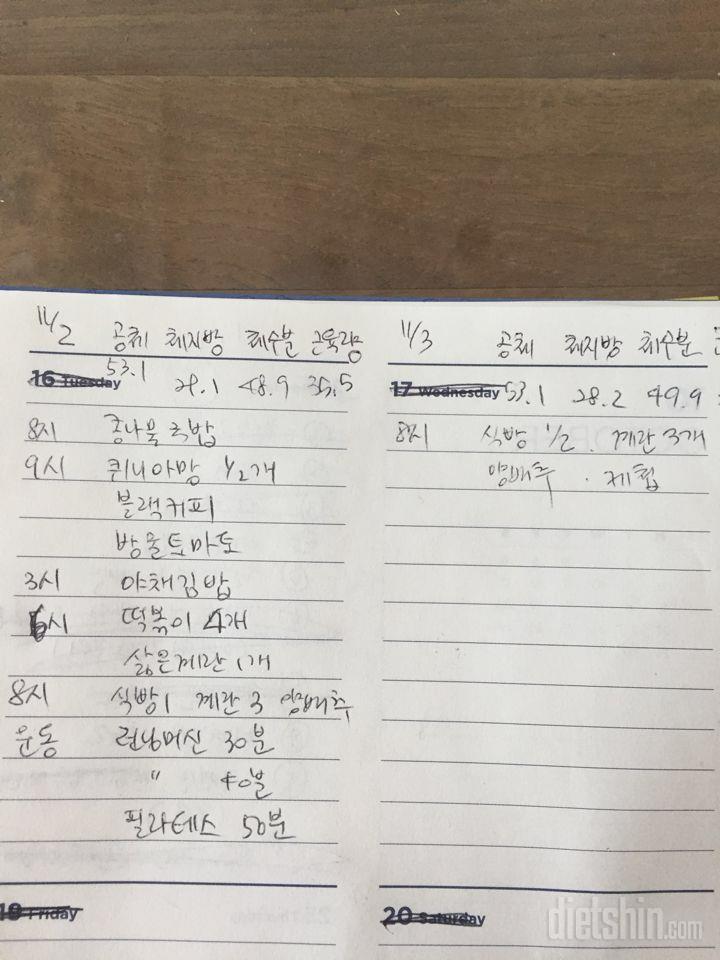 11/2 공체 체지방 체수분 근육량
16 Tuesday 53.1 29.1 48.9 35.5
8시 콩나물국밥
9시 퀴니아망 1/2개
블랙커피
방울토마토
3시 야채김밥
6시 떡볶이 4개
삶은계란 1개
8시 식빵1 계란 3 양배추
운동 런닝머신 30분
" 40분
필라테스 50분
18 Friday
11/3 공체 체지방 체수분
17 Wednesday 53.1 28.2 49.9
8시 식빵 1/2. 계란 3개
양배추 · 케첩
20 Saturday
dietshin.com